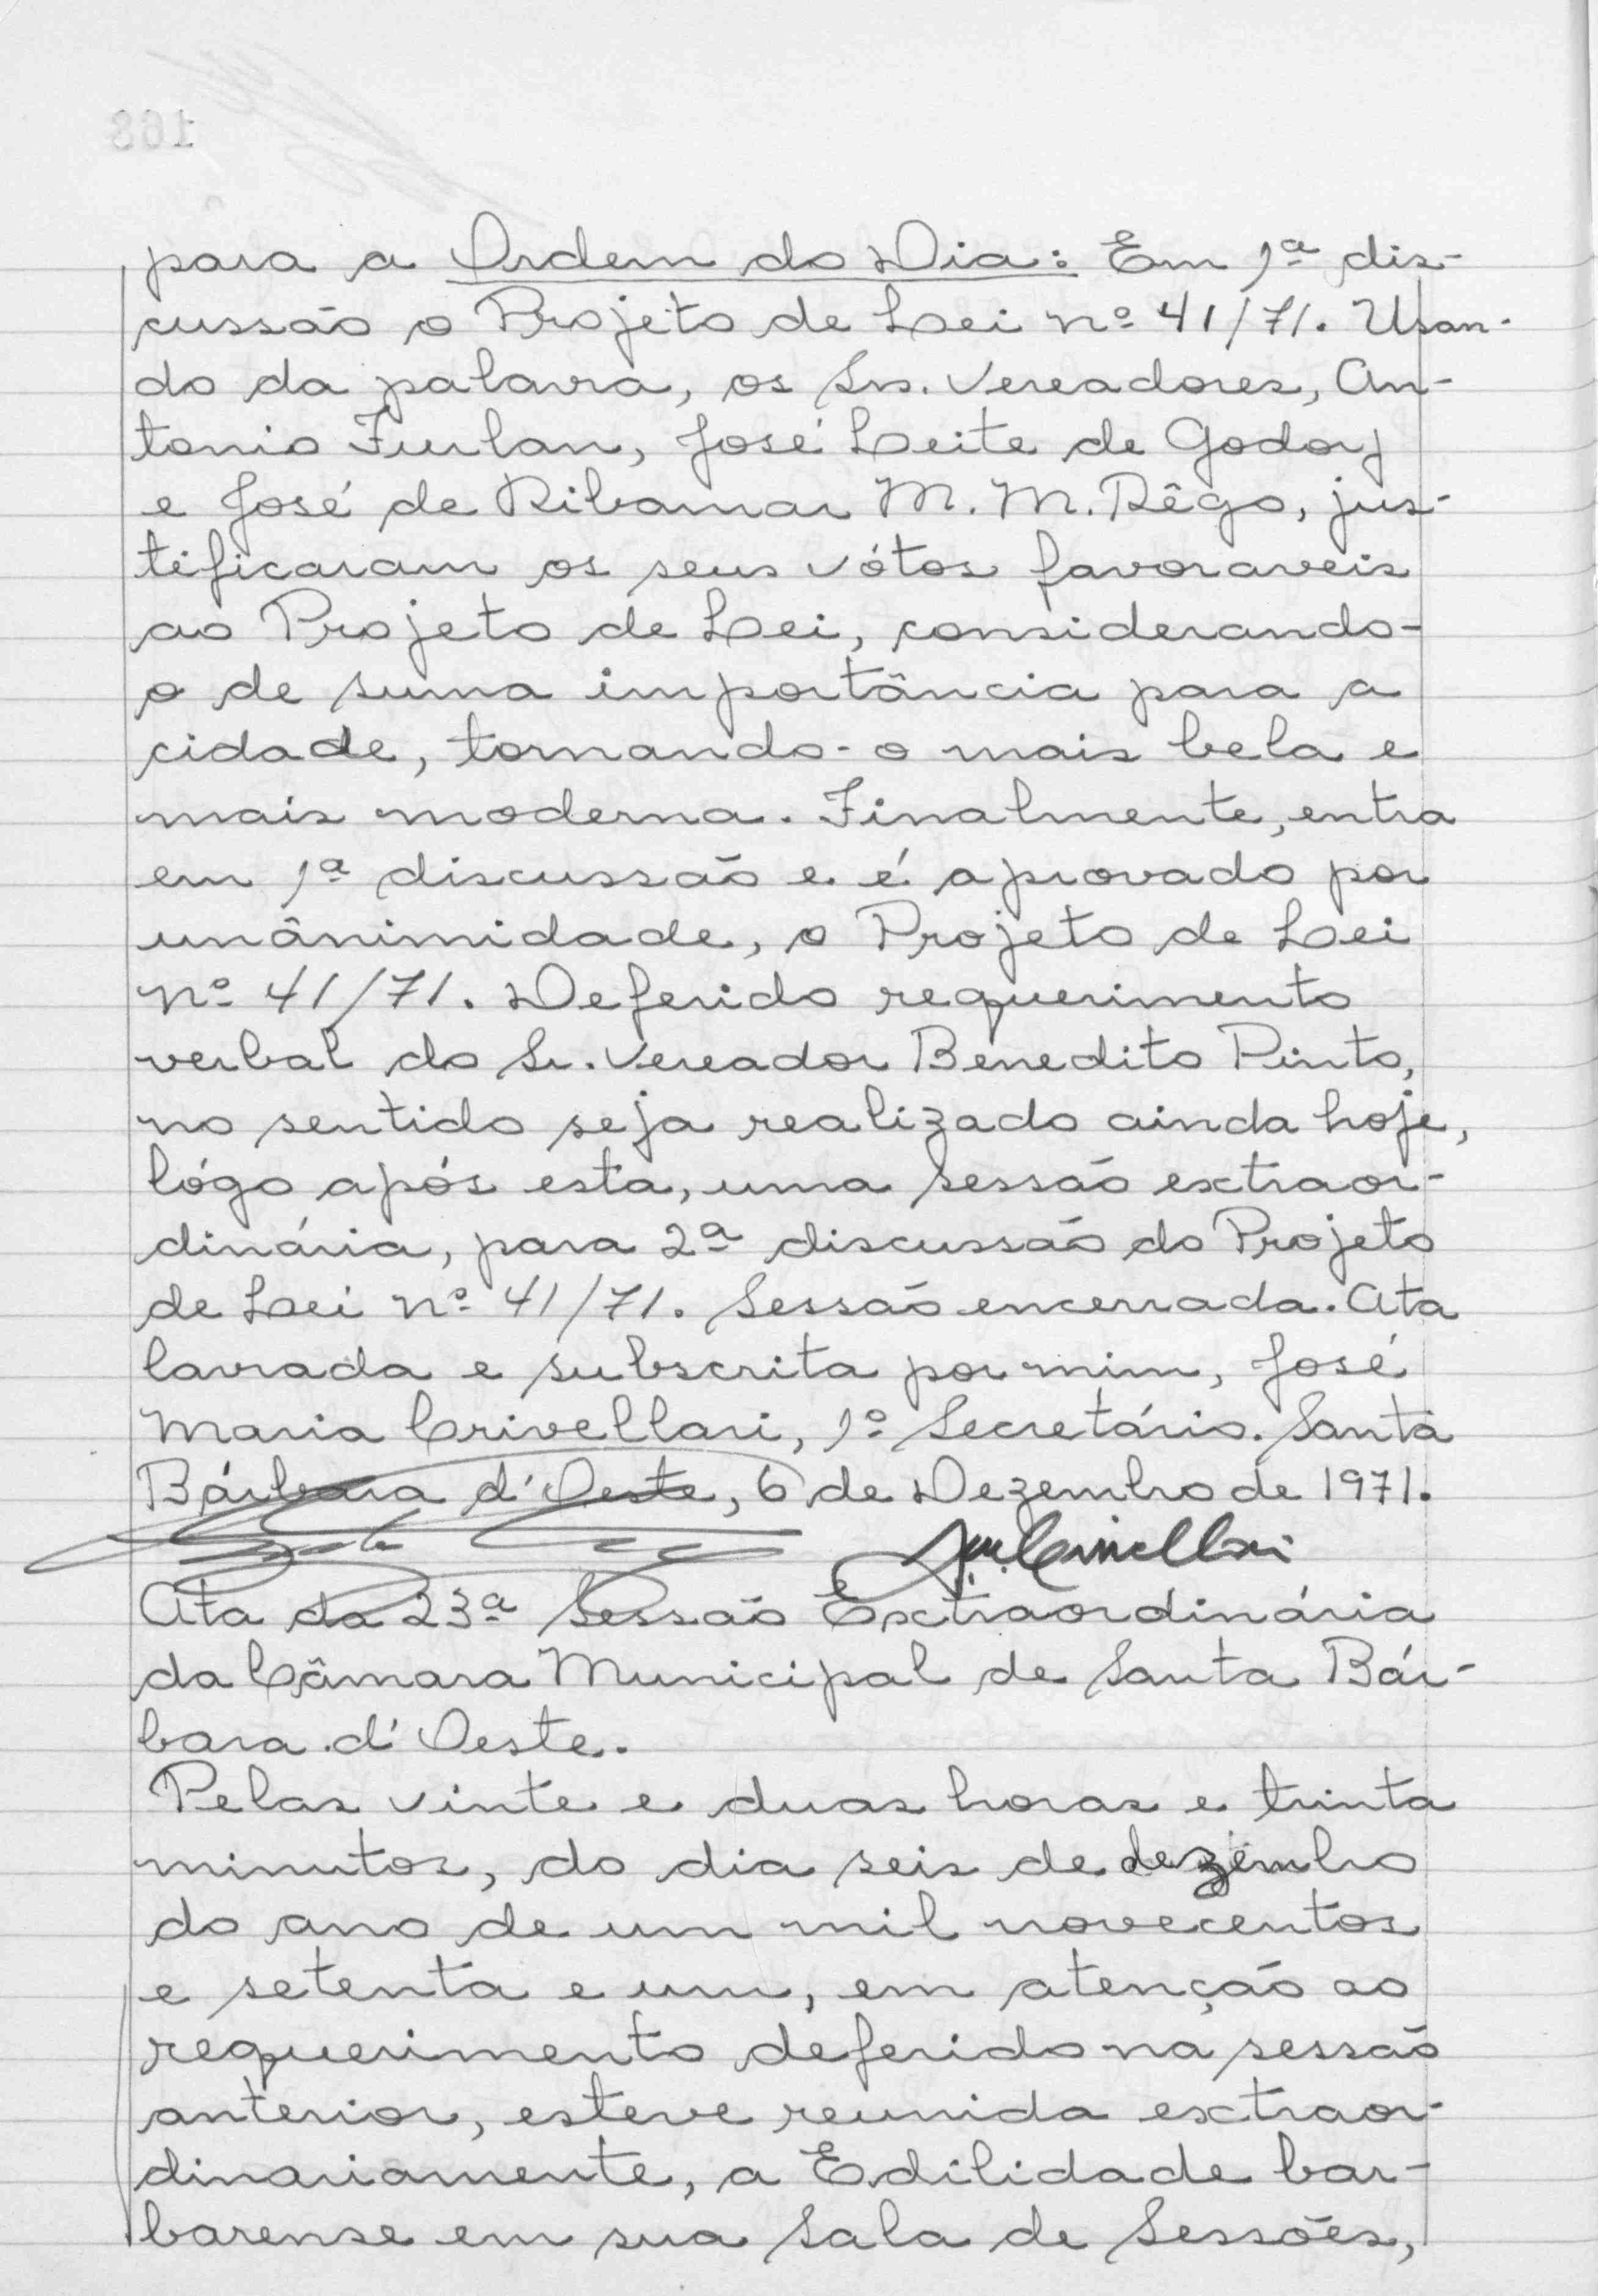 para a Ordem do Dia: Em 1ª dis-
cussão o Projeto de Lei nº 41/71. Usan-
do da palavra, os Srs. Vereadores, An-
tonio Furlan, José Leite de Godoy
e José de Ribamar M. M. Rêgo, jus-
tificaram os seus vótos favoraveis
ao Projeto de Lei, considerando-
o de suma importância para a
cidade, tornando-o mais bela e
mais moderna. Finalmente, entra
em 1ª discussão e é aprovado por
unânimidade, o Projeto de Lei
nº 41/71. Deferido requerimento
verbal do Sr. Vereador Benedito Pinto,
no sentido seja realizado ainda hoje,
lógo após esta, uma sessão extraor-
dinária, para 2ª discussão do Projeto
de Lei nº 41/71. Sessão encerrada. Ata
lavrada e subscrita por mim, José
Maria Crivellari, 1º Secretário. Santa
Bárbara d'Oeste, 6 de Dezembro de 1971.
Ata da 23ª Sessão Extraordinária
da Câmara Municipal de Santa Bár-
bara d'Oeste.
Pelas vinte e duas horas e trinta
minutos, do dia seis de dezembro
do ano de um mil novecentos
e setenta e um, em atenção ao
requerimento deferido na sessão
anterior, esteve reunida extraor-
dinariamente, a Edilidade bar-
barense em sua Sala de Sessões,